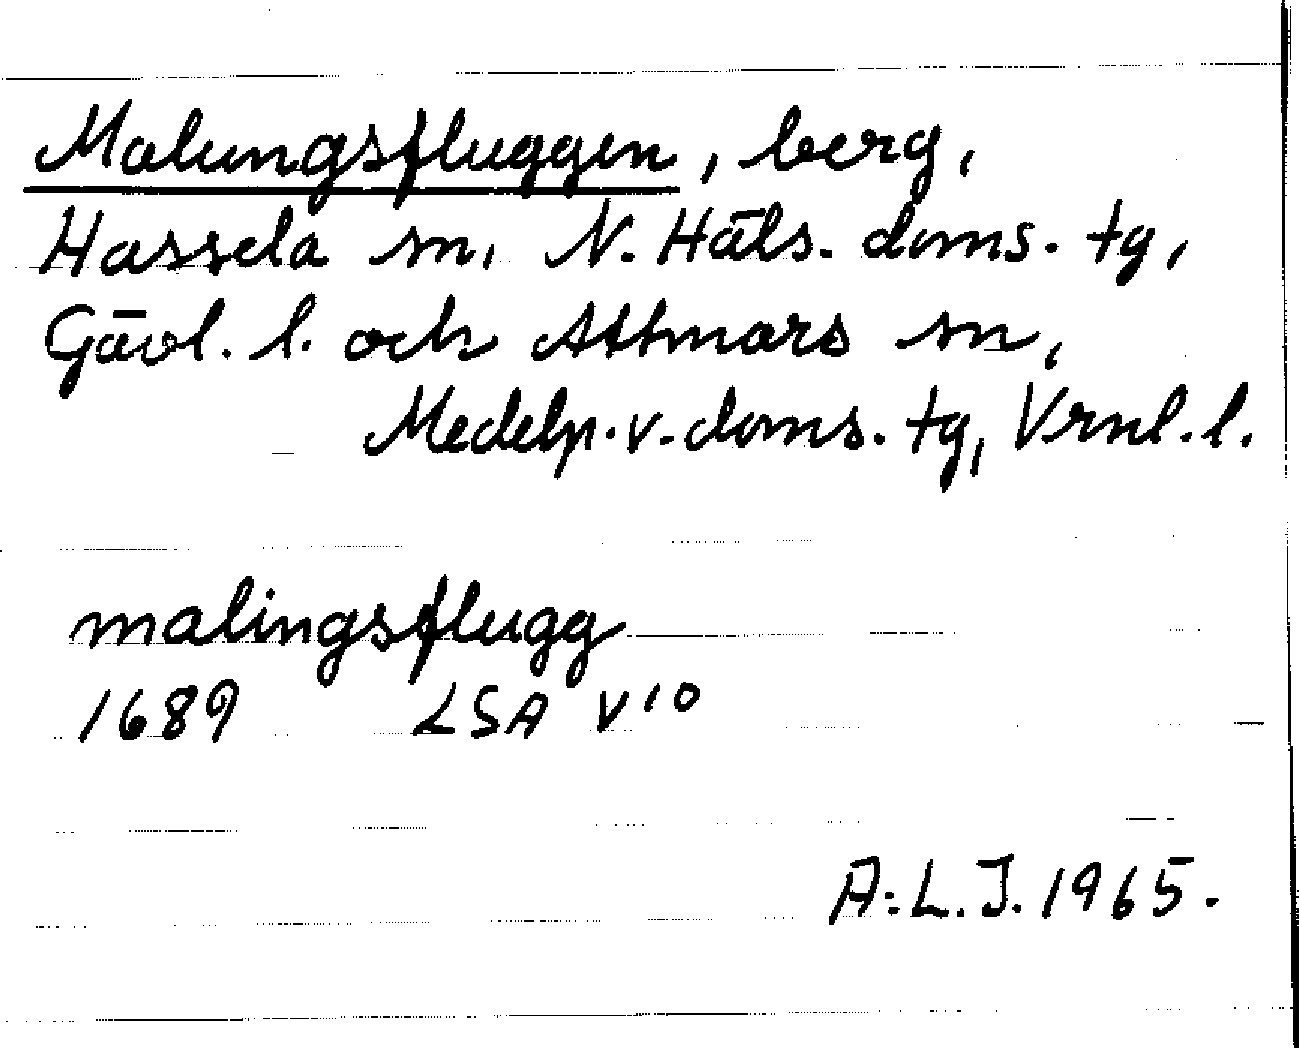 Malungsfluggen, berg,
Hassela sn, N. Häls. doms. tg,
Gävl. l. och Attmars sn,
Medelp. v. doms. tg, Vrnl. l.
malingsflugg
1689 LSA V 10
A:L.J. 1965.